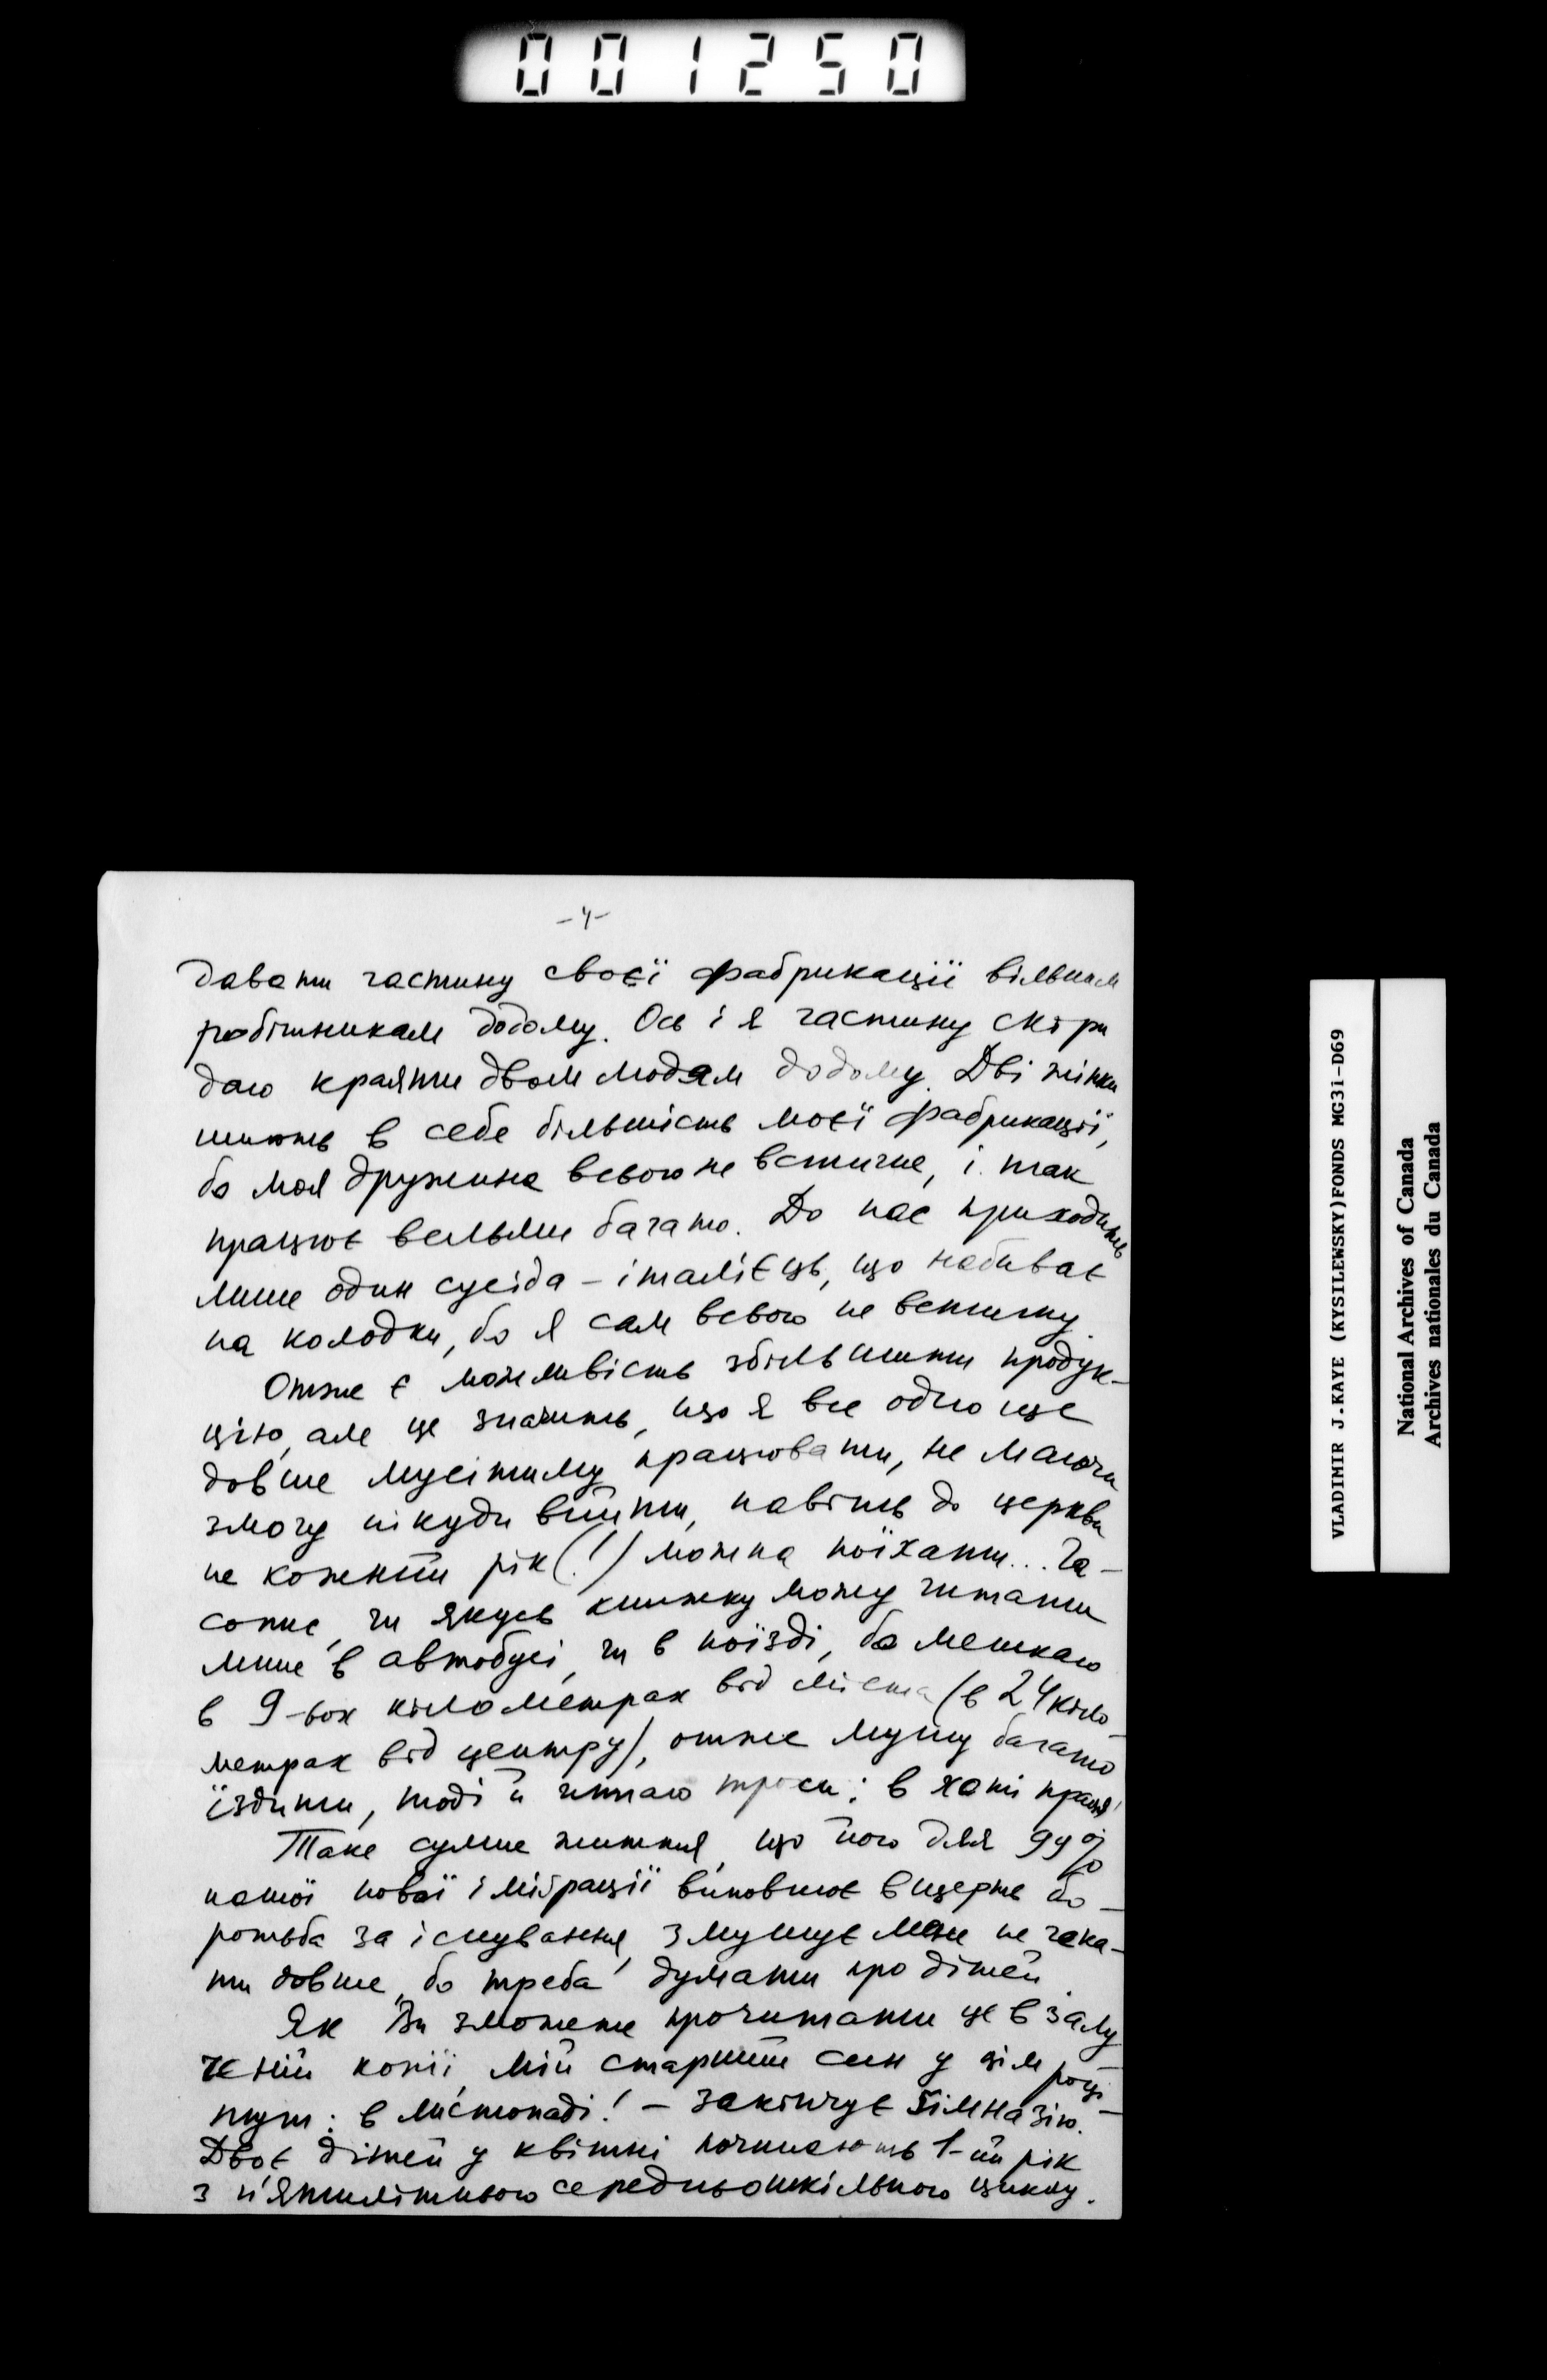 001250
-4-
давати частину своєї фабрикації вільним
робітникам додому. Ось і я частину скіри
даю краяти двом людям додому. Дві жінки
шиють в себе більшість моєї фабрикації,
бо моя дружина всього не встигне, і так
працює вельми багато. До нас приходить
лише один сусіда - італієць, що набиває
на колодки, бо я сам всього не встигну.
Отже є можливість збільшити продук-
цію, але це значить, що я все одно ще
довше мусітиму працювати, не маючи
змогу нікуди вийти, навіть до церкви
не кожний рік (!) можна поїхати... Ча-
сопис, чи якусь книжку можу читати
лише в автобусі, чи в поїзді, бо мешкаю
в 9-вох кілометрах від міста (в 24 кіло-
метрах від центру), отже мушу багато
їздити, тоді й читаю трохи; в хаті праця!
Таке сумне життя, що його для 99%
нашої нової іміґрації виповнює вщерть бо-
ротьба за існування, змушує мене не чека-
ти довше, бо треба думати про дітей.
Як Ви зможете прочитати це в залу-
ченій копії, мій старший син у цім році -
тут: в листопаді! - закінчує ґімназію.
Двоє дітей у квітні починають 1-ий рік
з п'ятилітнього середньошкільного циклу.
VLADIMIR J.KAYE (KYSILEWSKY)FONDS MG31-D69
National Archives of Canada
Archives nationales du Canada